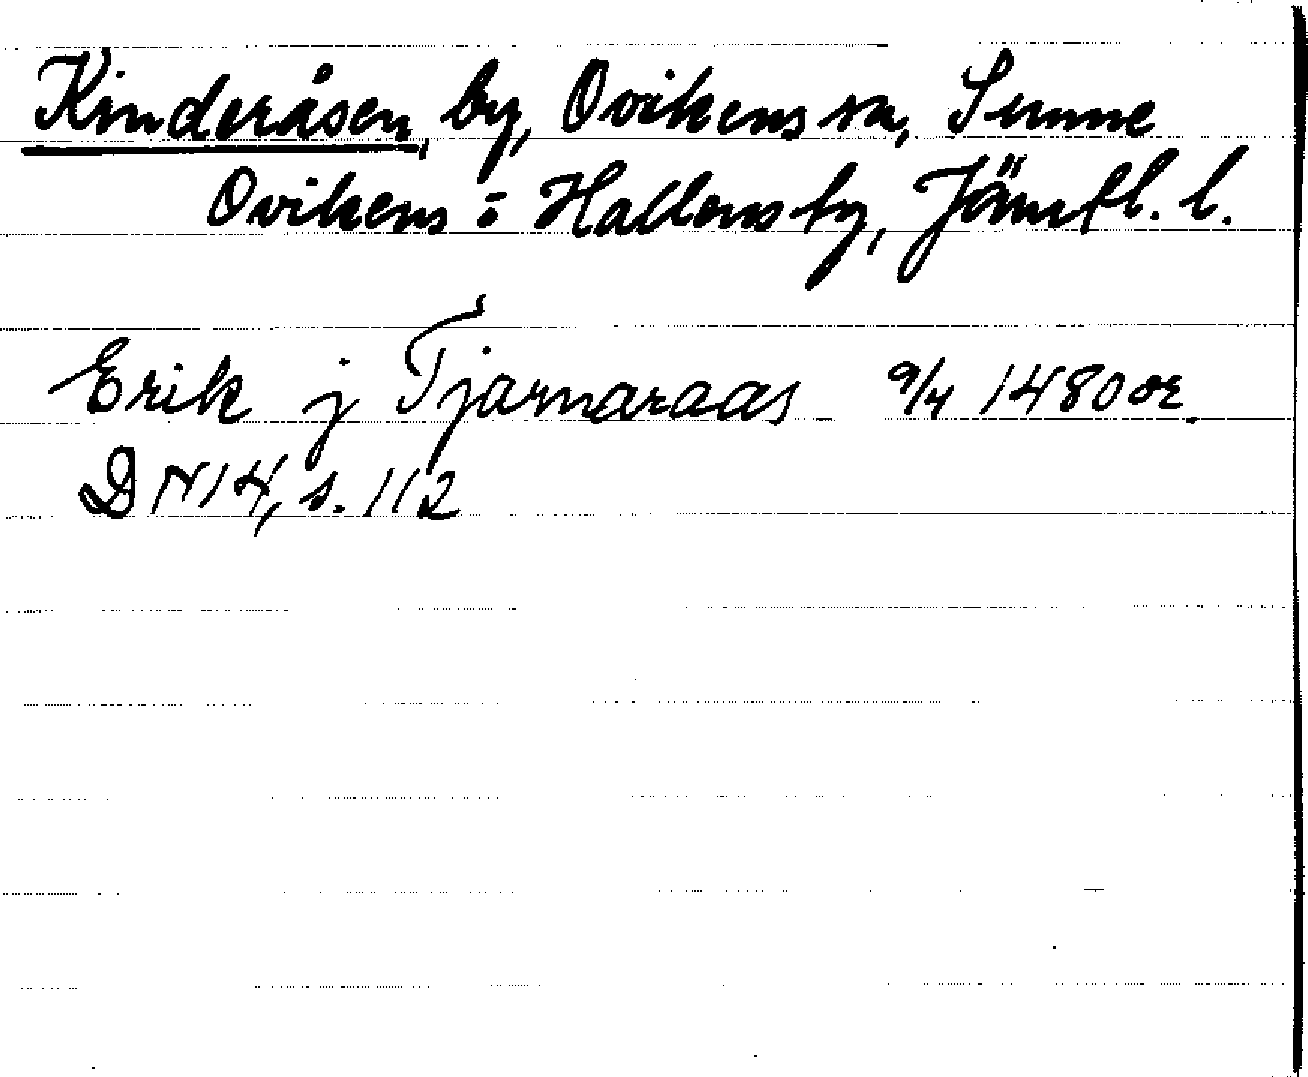 Kinderåsen, by, Ovikens sn, Sunne
Ovikens o Hallens tg, Jämtl. l.
Erik j Tjarnaraas 9/4 1480 or.
DN 14, s. 112